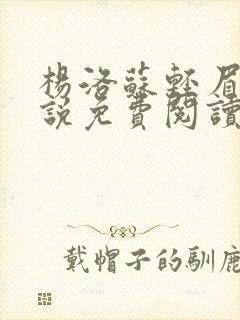 楊洛蘇輕眉
說免費閱讀
戴帽子的馴鹿